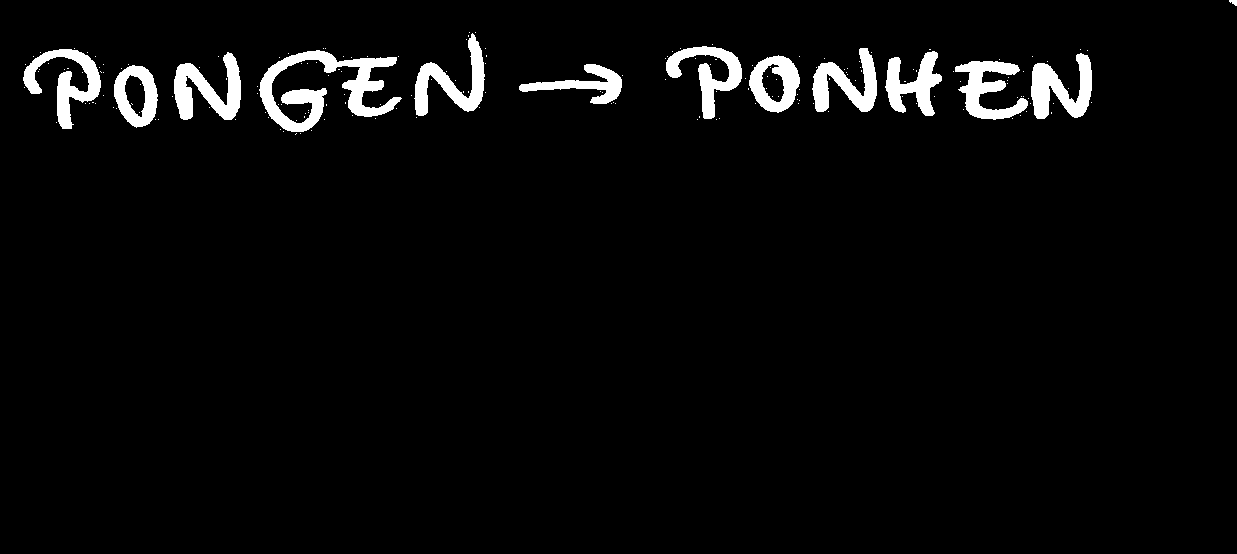 PONGEN → PONHEN